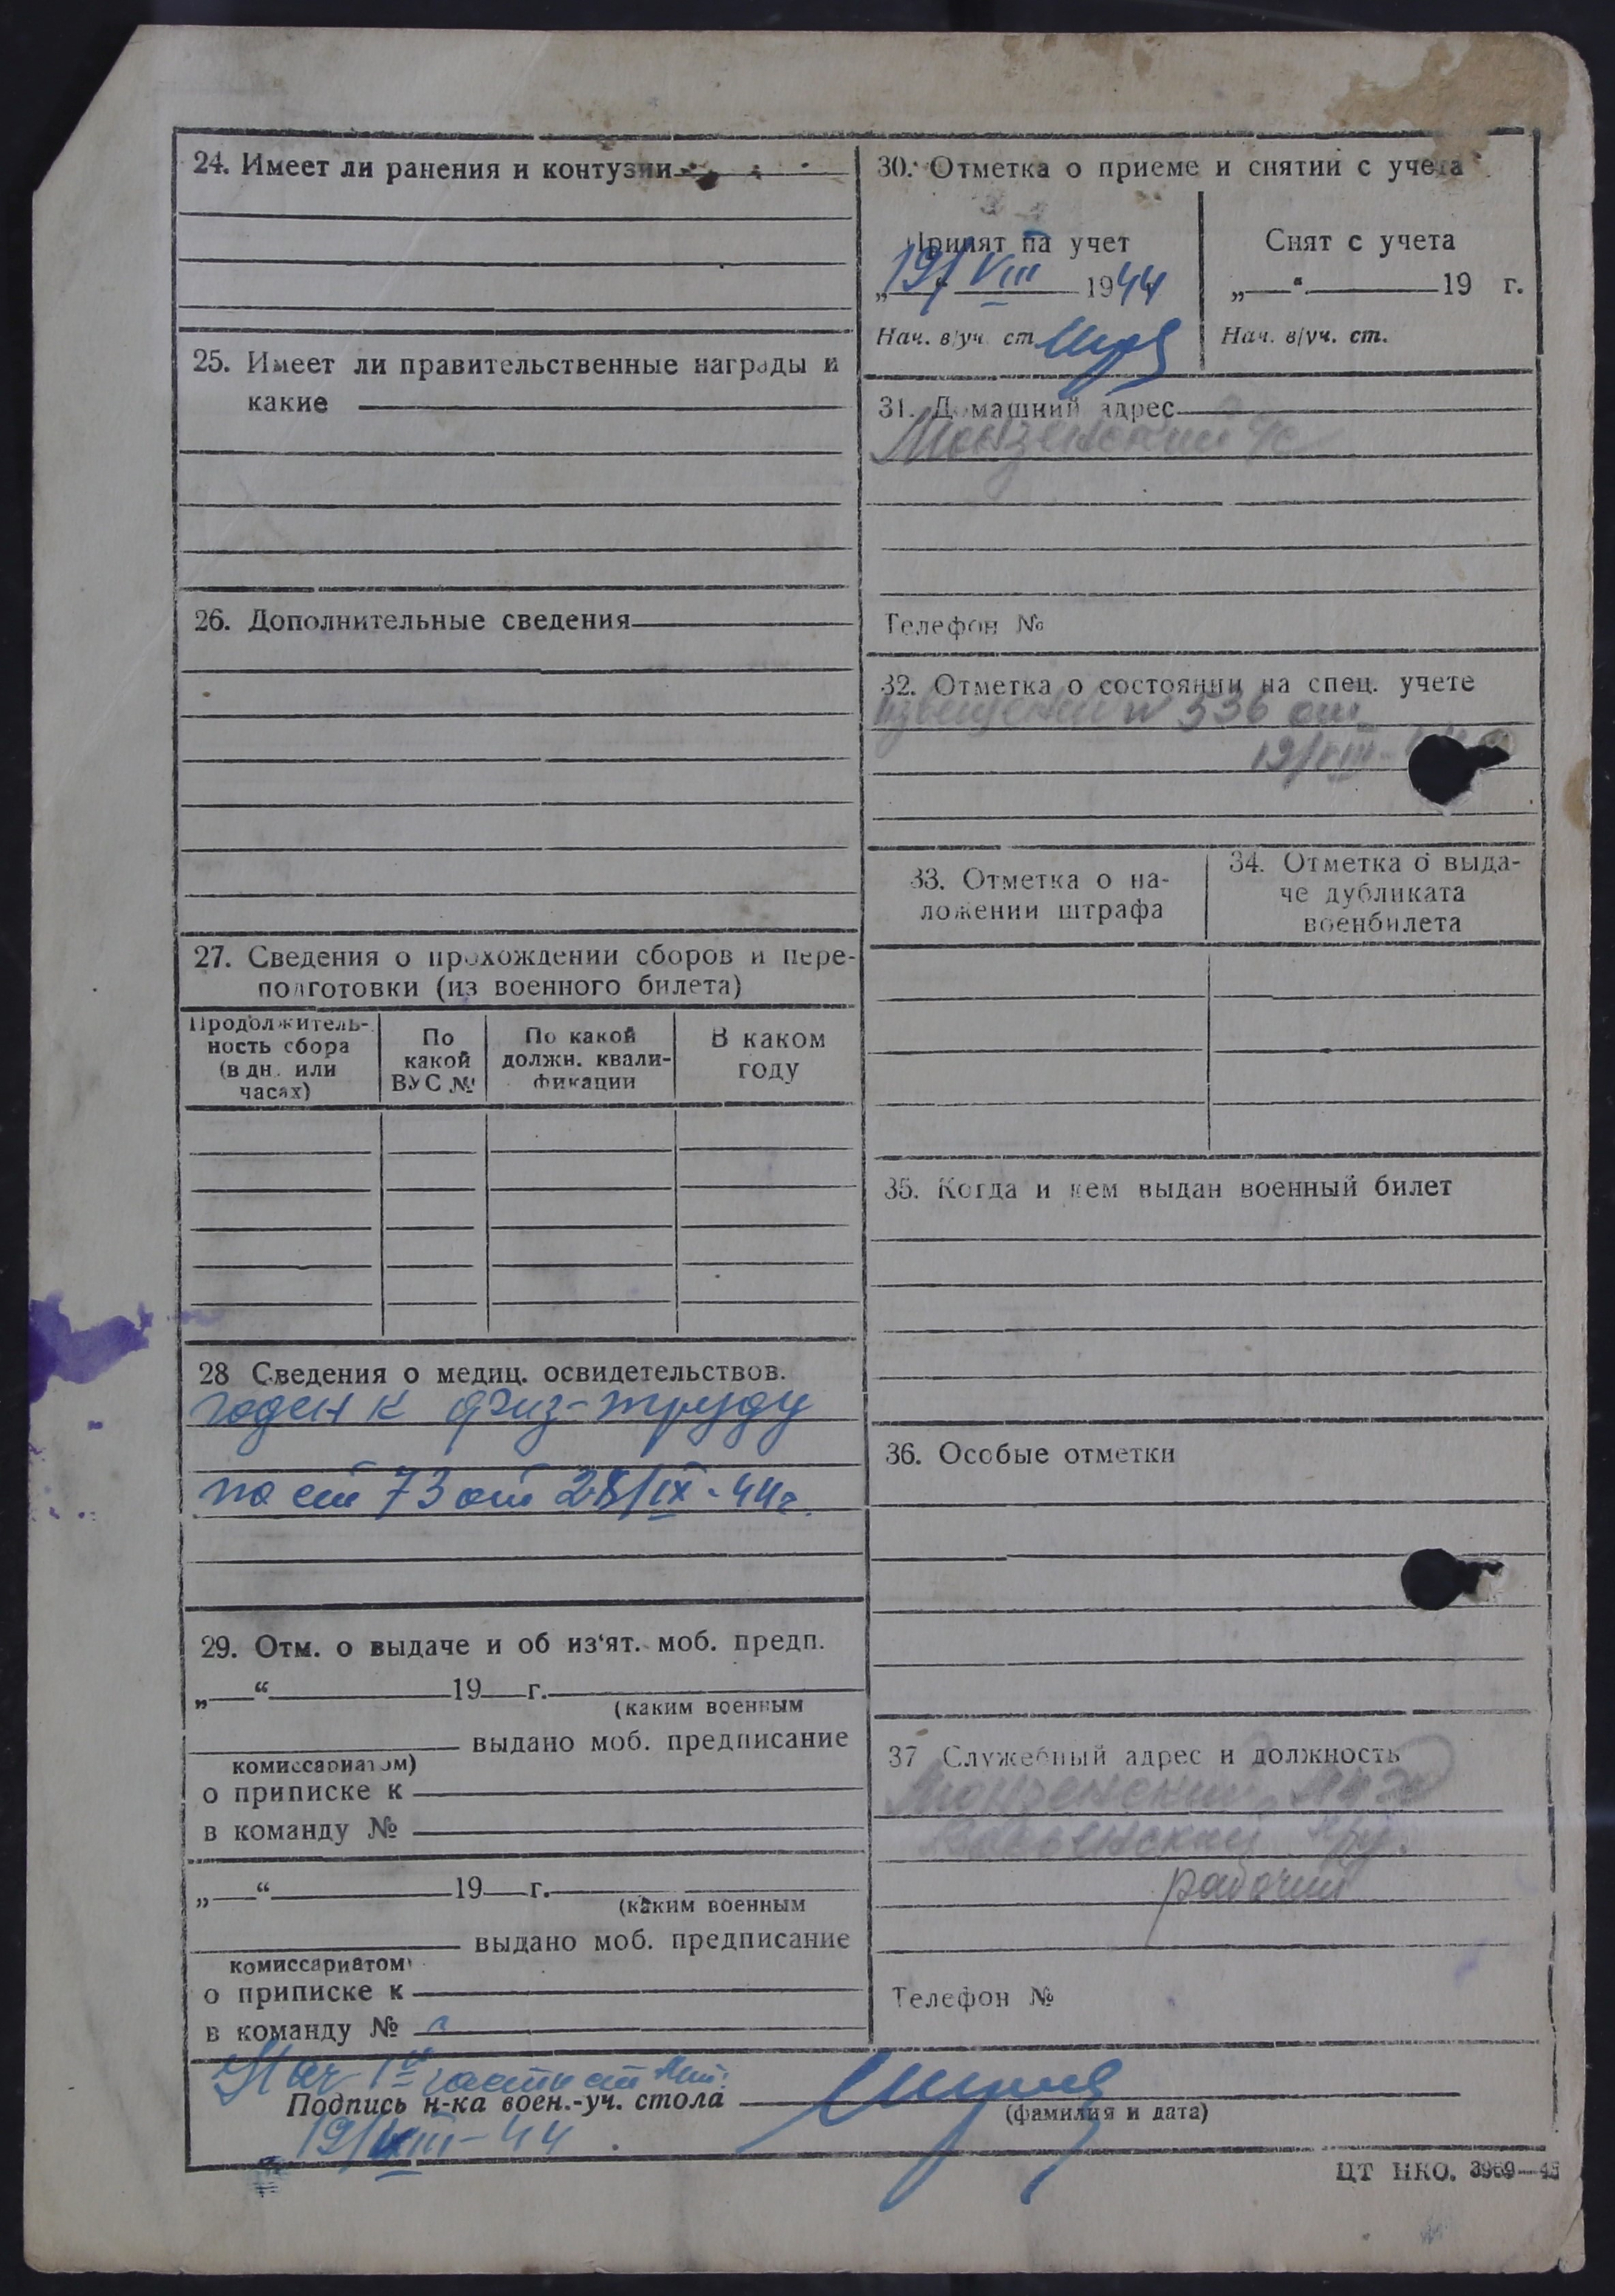 24. Имеет ли ранения и контузии
25. Имеет ли правительственные награды и
какие
26. Дополнительные сведения
27. Сведения о прохождении сборов и пере-
подготовки (из военного билета)
Продолжитель-
ность сбора
(в дн. или
часах)
По
какой
ВУС №
По какой
должн. квали-
фикации
В каком
году
28 Сведения о медиц. освидетельствов.
годен к физ-труду
по ст 73 от 28/IX-44г.
29. Отм. о выдаче и об из‘ят. моб. предп.
„ “ 19 г.
(каким военным
выдано моб. предписание
комиссариатом)
о приписке к
в команду №
„ “ 19 г.
(каким военным
выдано моб. предписание
комиссариатом)
о приписке к
в команду №
30. Отметка о приеме и снятии с учета
Принят на учет
19/VIII 1944
Нач. в/уч. ст.
Снят с учета
„ “ 19 г.
Нач. в/уч. ст.
31. Домашний адрес
Монзенский
Телефон №
32. Отметка о состоянии на спец. учете
извещение N 536 от
19/VIII-
33. Отметка о на-
ложении штрафа
34. Отметка о выда-
че дубликата
военбилета
35. Когда и кем выдан военный билет
36. Особые отметки
37 Служебный адрес и должность
Монзенский
рабочий
Телефон №
Нач 1й части
Подпись н-ка воен.-уч. стола
(фамилия и дата)
19/VIII-44
ЦТ НКО. 3969—45